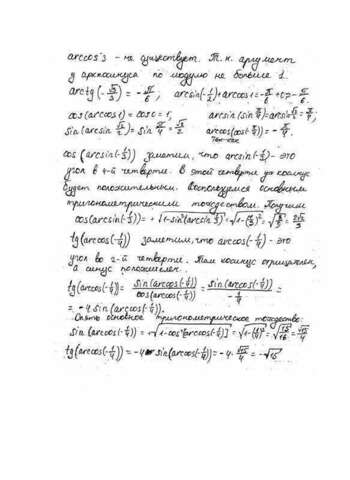 arccos 3 - не существует. Т.к. аргумент
у арккосинуса по модулю не больше 1.
arctg(-√3/3) = -π/6; arcsin(-1/2)+arccos 1 = -π/6 + 0 = -π/6.
cos(arccos 1) = cos 0 = 1, arcsin(sin π/4) = arcsin √2/2 = π/4,
sin(arcsin √2/2) = sin π/4 = √2/2 arccos(cos(-π/4)) = -π/4.
cos(arcsin(-1/3)) заметим, что arcsin(-1/3) - это
угол в 4-й четверти. В этой четверти косинус
будет положительным. Воспользуемся основным
тригонометрическим тождеством. Получим
cos(arcsin(-1/3)) = +√1-sin²(arcsin 1/3) = √1-(1/3)² = √8/9 = 2√2/3
tg(arccos(-1/4)) заметим, что arccos(-1/4) - это
угол во 2-й четверти. Там косинус отрицателен,
а синус положителен.
tg(arccos(-1/4)) = sin(arccos(-1/4))/cos(arccos(-1/4)) = sin(arccos(-1/4))/-1/4 =
= -4 sin(arccos(-1/4)).
Опять основное тригонометрическое тождество:
sin(arccos(-1/4)) = +√1-cos²[arccos(-1/4)] = √1-(1/4)² = √15/16 = √15/4
tg(arccos(-1/4)) = -4 sin(arccos(-1/4)) = -4·√15/4 = -√15